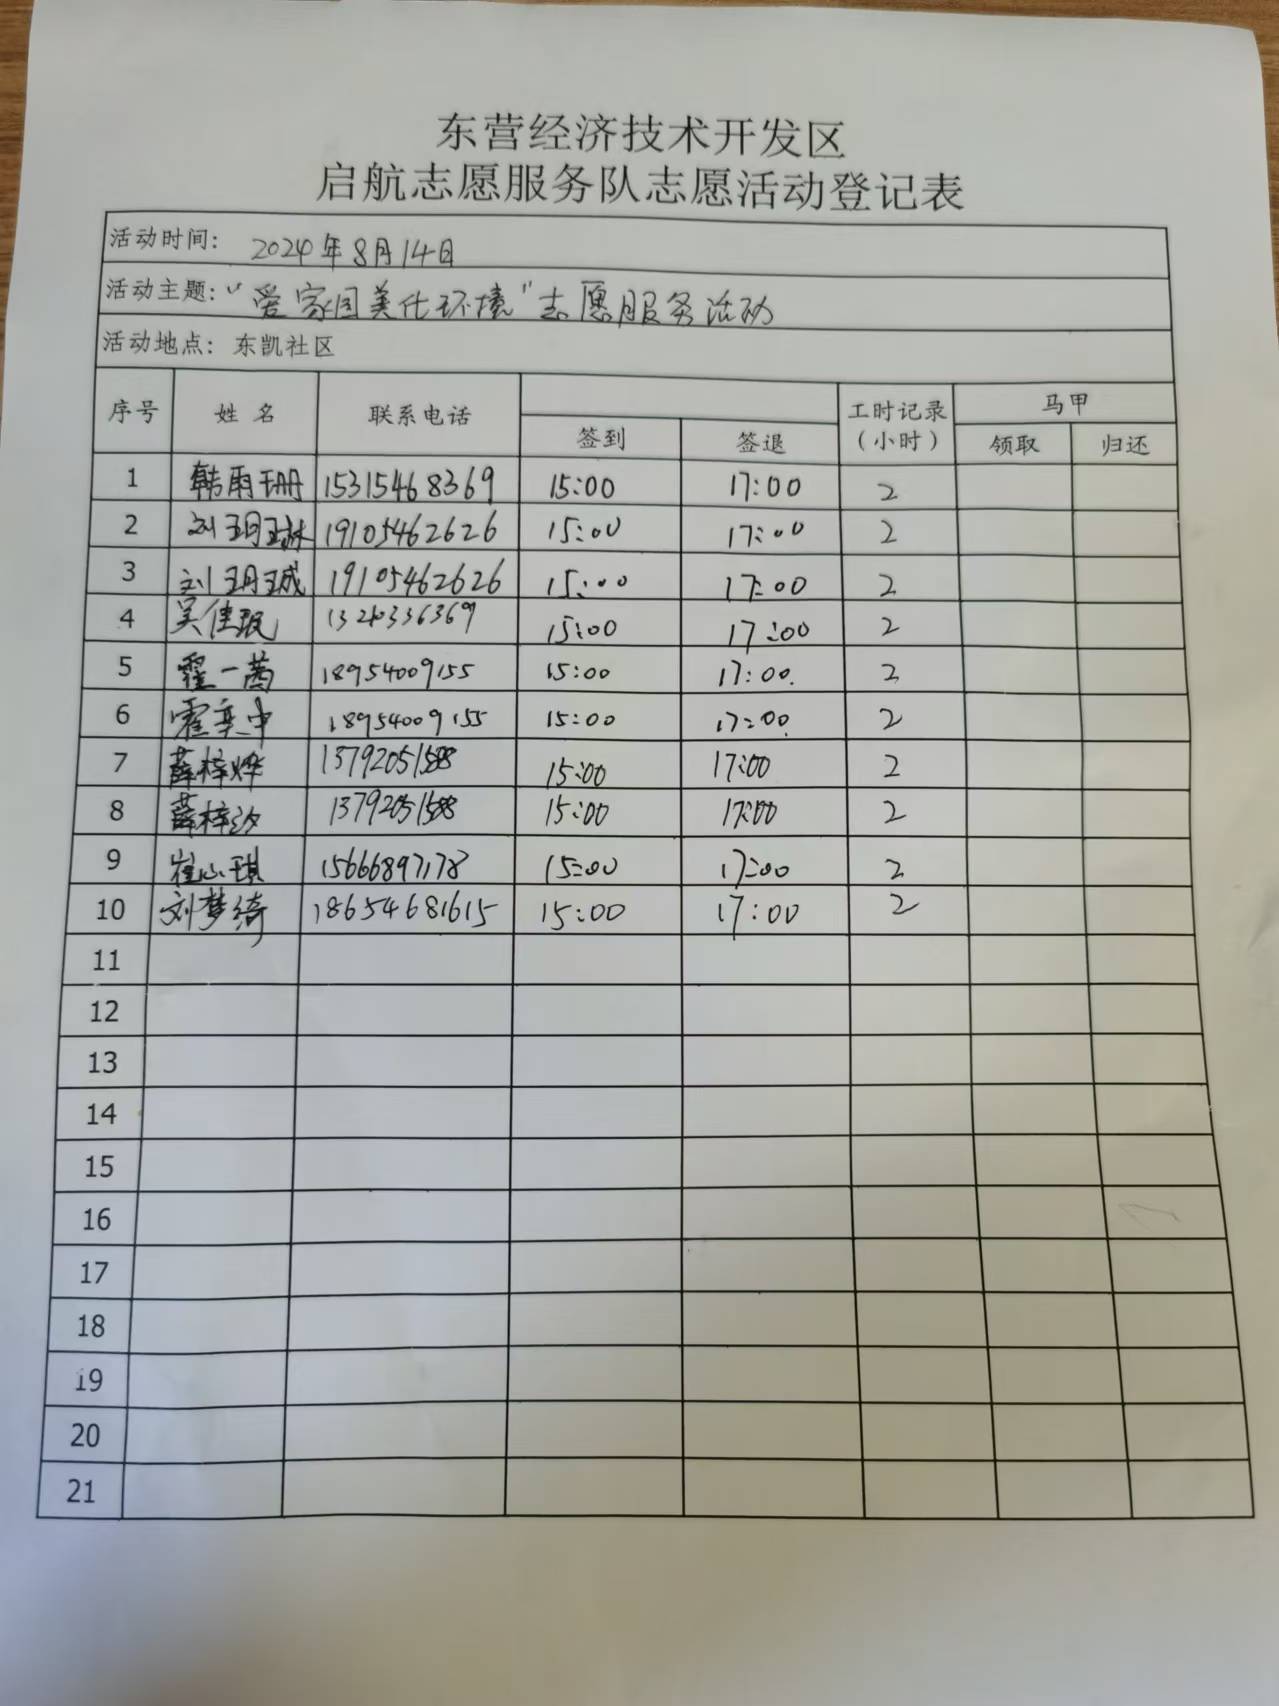 东营经济技术开发区
启航志愿服务队志愿活动登记表
活动时间: 2024年8月14日
活动主题: “爱家园美化环境”志愿服务活动
活动地点: 东凯社区
序号 姓名 联系电话 工时记录（小时） 马甲
签到 签退 领取 归还
1 韩雨珊 15315468369 15:00 17:00 2
2 刘玥琳 19105462626 15:00 17:00 2
3 刘玥珹 19105462626 15:00 17:00 2
4 吴佳珉 15:00 17:00 2
5 霍一茜 18954009155 15:00 17:00 2
6 霍奕中 18954009155 15:00 17:00 2
7 薛梓烨 13792051588 15:00 17:00 2
8 薛梓汐 13792051588 15:00 17:00 2
9 崔心琪 15666897178 15:00 17:00 2
10 刘梦绮 18654681615 15:00 17:00 2
11
12
13
14
15
16
17
18
19
20
21